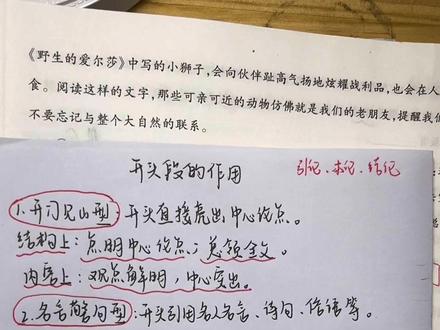 《野生的爱尔莎》中写的小狮子，会向伙伴趾高气扬地炫耀战利品，也会在人
食。阅读这样的文字，那些可亲可近的动物仿佛就是我们的老朋友，提醒我们
不要忘记与整个大自然的联系。
开头段的作用
引记、本记、结记
1.开门见山型：开头直接亮出中心论点。
结构上：点明中心论点；总领全文。
内容上：观点鲜明，中心突出。
2.名言警句型：开头引用名人名言、诗句、俗语等。